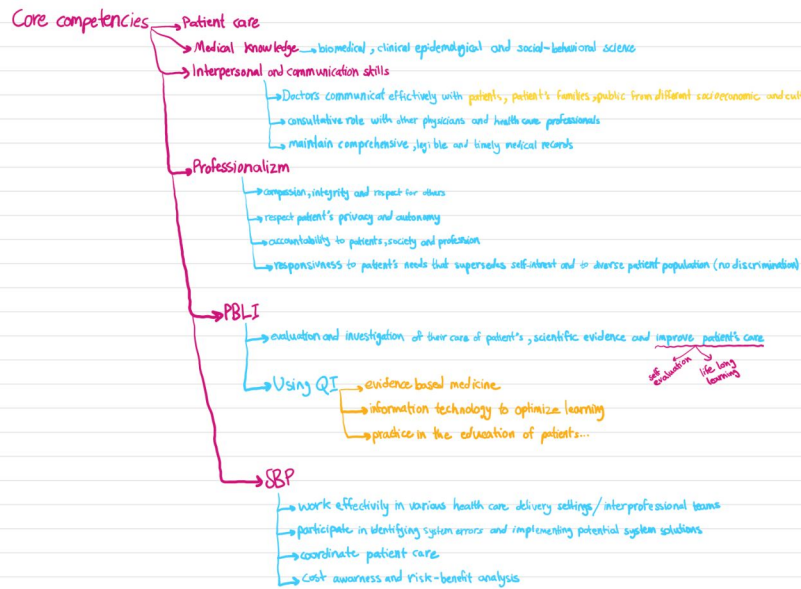 Core competencies → Patient care
→ Medical knowledge → biomedical, clinical epidemological and social-behavioral science
→ Interpersonal and communication skills
→ Doctors communicat effictively with patients, patient's families, public from different socioeconomic and cul
→ consultative role with other physicians and health care professionals
→ maintain comprehensive, legible and timely medical records
→ Professionalizm
→ compassion, integrity and respect for others
→ respect patient's privacy and autonomy
→ accountability to patients, society and profession
→ responsivness to patient's needs that supersedes self-intrest and to diverse patient population (no discrimination)
→ PBLI
→ evaluation and investigation of their care of patient's, scientific evidence and improve patient's care
self evaluation
life long learning
→ Using QI → evidence based medicine
→ information technology to optimize learning
→ practice in the education of patients...
→ SBP
→ work effectivily in various health care delivery settings/interprofessional teams
→ participate in identifying system errors and implementing potential system solutions
→ coordinate patient care
→ Cost awarness and risk-benefit analysis